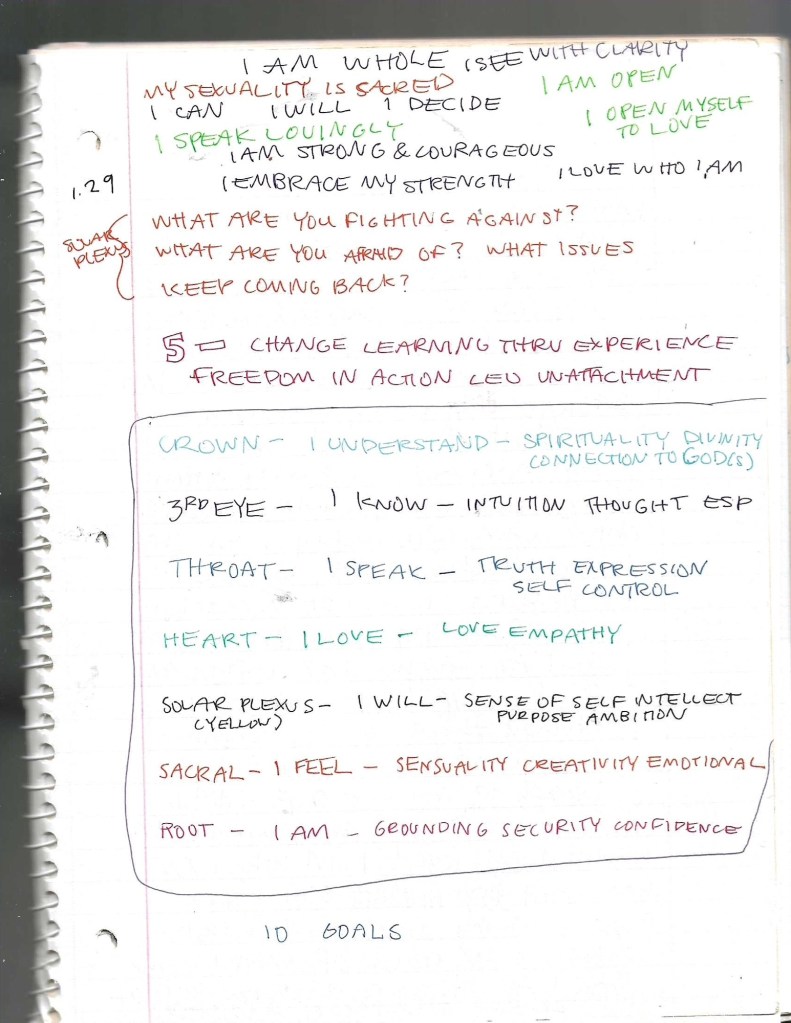 I AM WHOLE I SEE WITH CLARITY
MY SEXUALITY IS SACRED
I AM OPEN
I CAN I WILL I DECIDE
I OPEN MYSELF
TO LOVE
I SPEAK LOVINGLY
I AM STRONG & COURAGEOUS
I EMBRACE MY STRENGTH I LOVE WHO I AM
1.29
SOLAR
PLEXUS
WHAT ARE YOU FIGHTING AGAINST?
WHAT ARE YOU AFRAID OF? WHAT ISSUES
KEEP COMING BACK?
5 – CHANGE LEARNING THRU EXPERIENCE
FREEDOM IN ACTION LEO UNATTACHMENT
CROWN – I UNDERSTAND – SPIRITUALITY DIVINITY
CONNECTION TO GOD(S)
3RD EYE – I KNOW – INTUITION THOUGHT ESP
THROAT – I SPEAK – TRUTH EXPRESSION
SELF CONTROL
HEART – I LOVE – LOVE EMPATHY
SOLAR PLEXUS – I WILL – SENSE OF SELF INTELLECT
(YELLOW) PURPOSE AMBITION
SACRAL – I FEEL – SENSUALITY CREATIVITY EMOTIONAL
ROOT – I AM – GROUNDING SECURITY CONFIDENCE
10 GOALS